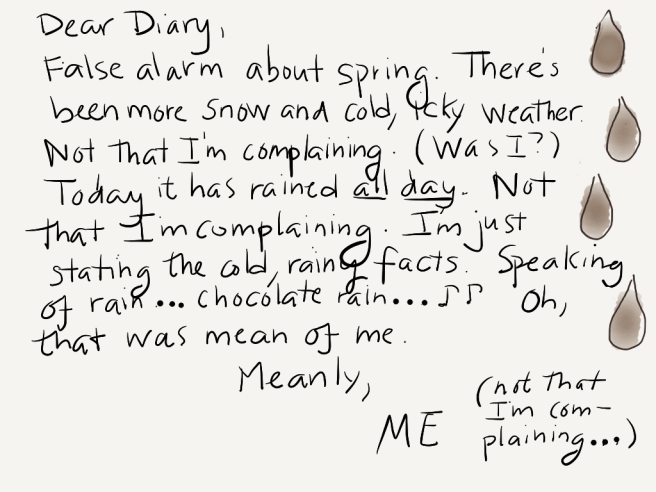 Dear Diary,
False alarm about spring. There's
been more snow and cold, icky weather.
Not that I'm complaining. (Was I?)
Today it has rained all day. Not
that I'm complaining. I'm just
stating the cold, rainy facts. Speaking
of rain... chocolate rain...♪♫ Oh,
that was mean of me.
Meanly,
ME
(not that
I'm com-
plaining...)